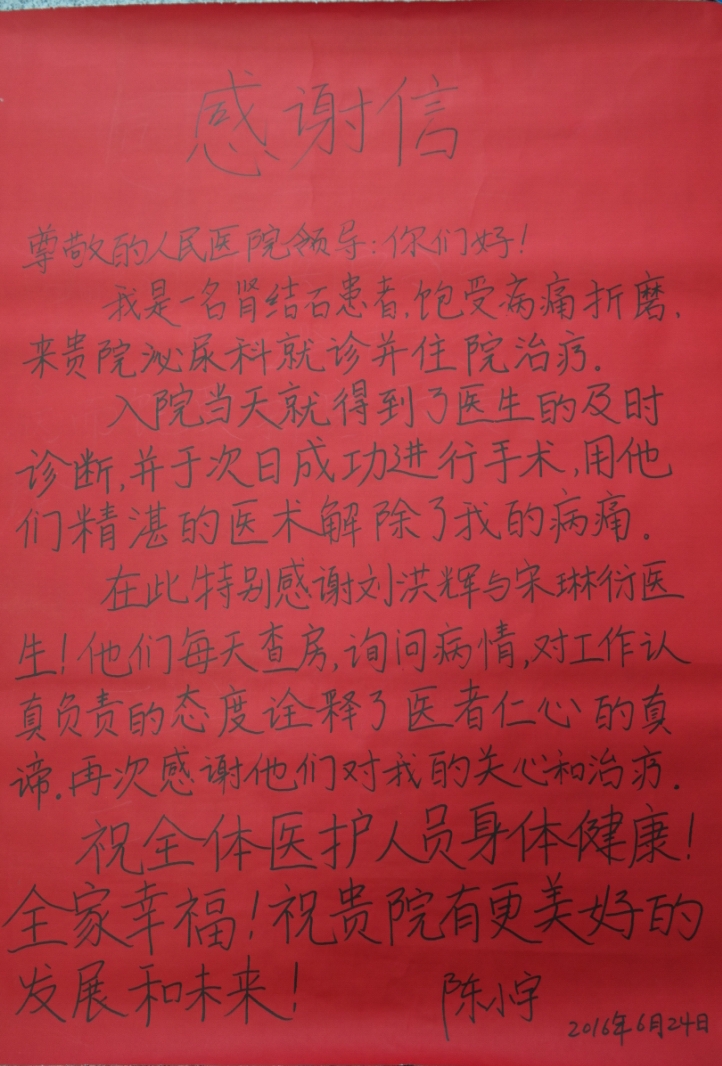 感谢信
尊敬的人民医院领导:你们好!
我是一名肾结石患者,饱受病痛折磨,
来贵院泌尿科就诊并住院治疗。
入院当天就得到了医生的及时
诊断,并于次日成功进行手术,用他
们精湛的医术解除了我的病痛。
在此特别感谢刘洪辉与宋琳衍医
生!他们每天查房,询问病情,对工作认
真负责的态度诠释了医者仁心的真
谛。再次感谢他们对我的关心和治疗.
祝全体医护人员身体健康!
全家幸福!祝贵院有更美好的
发展和未来!
陈小宇
2016年6月24日